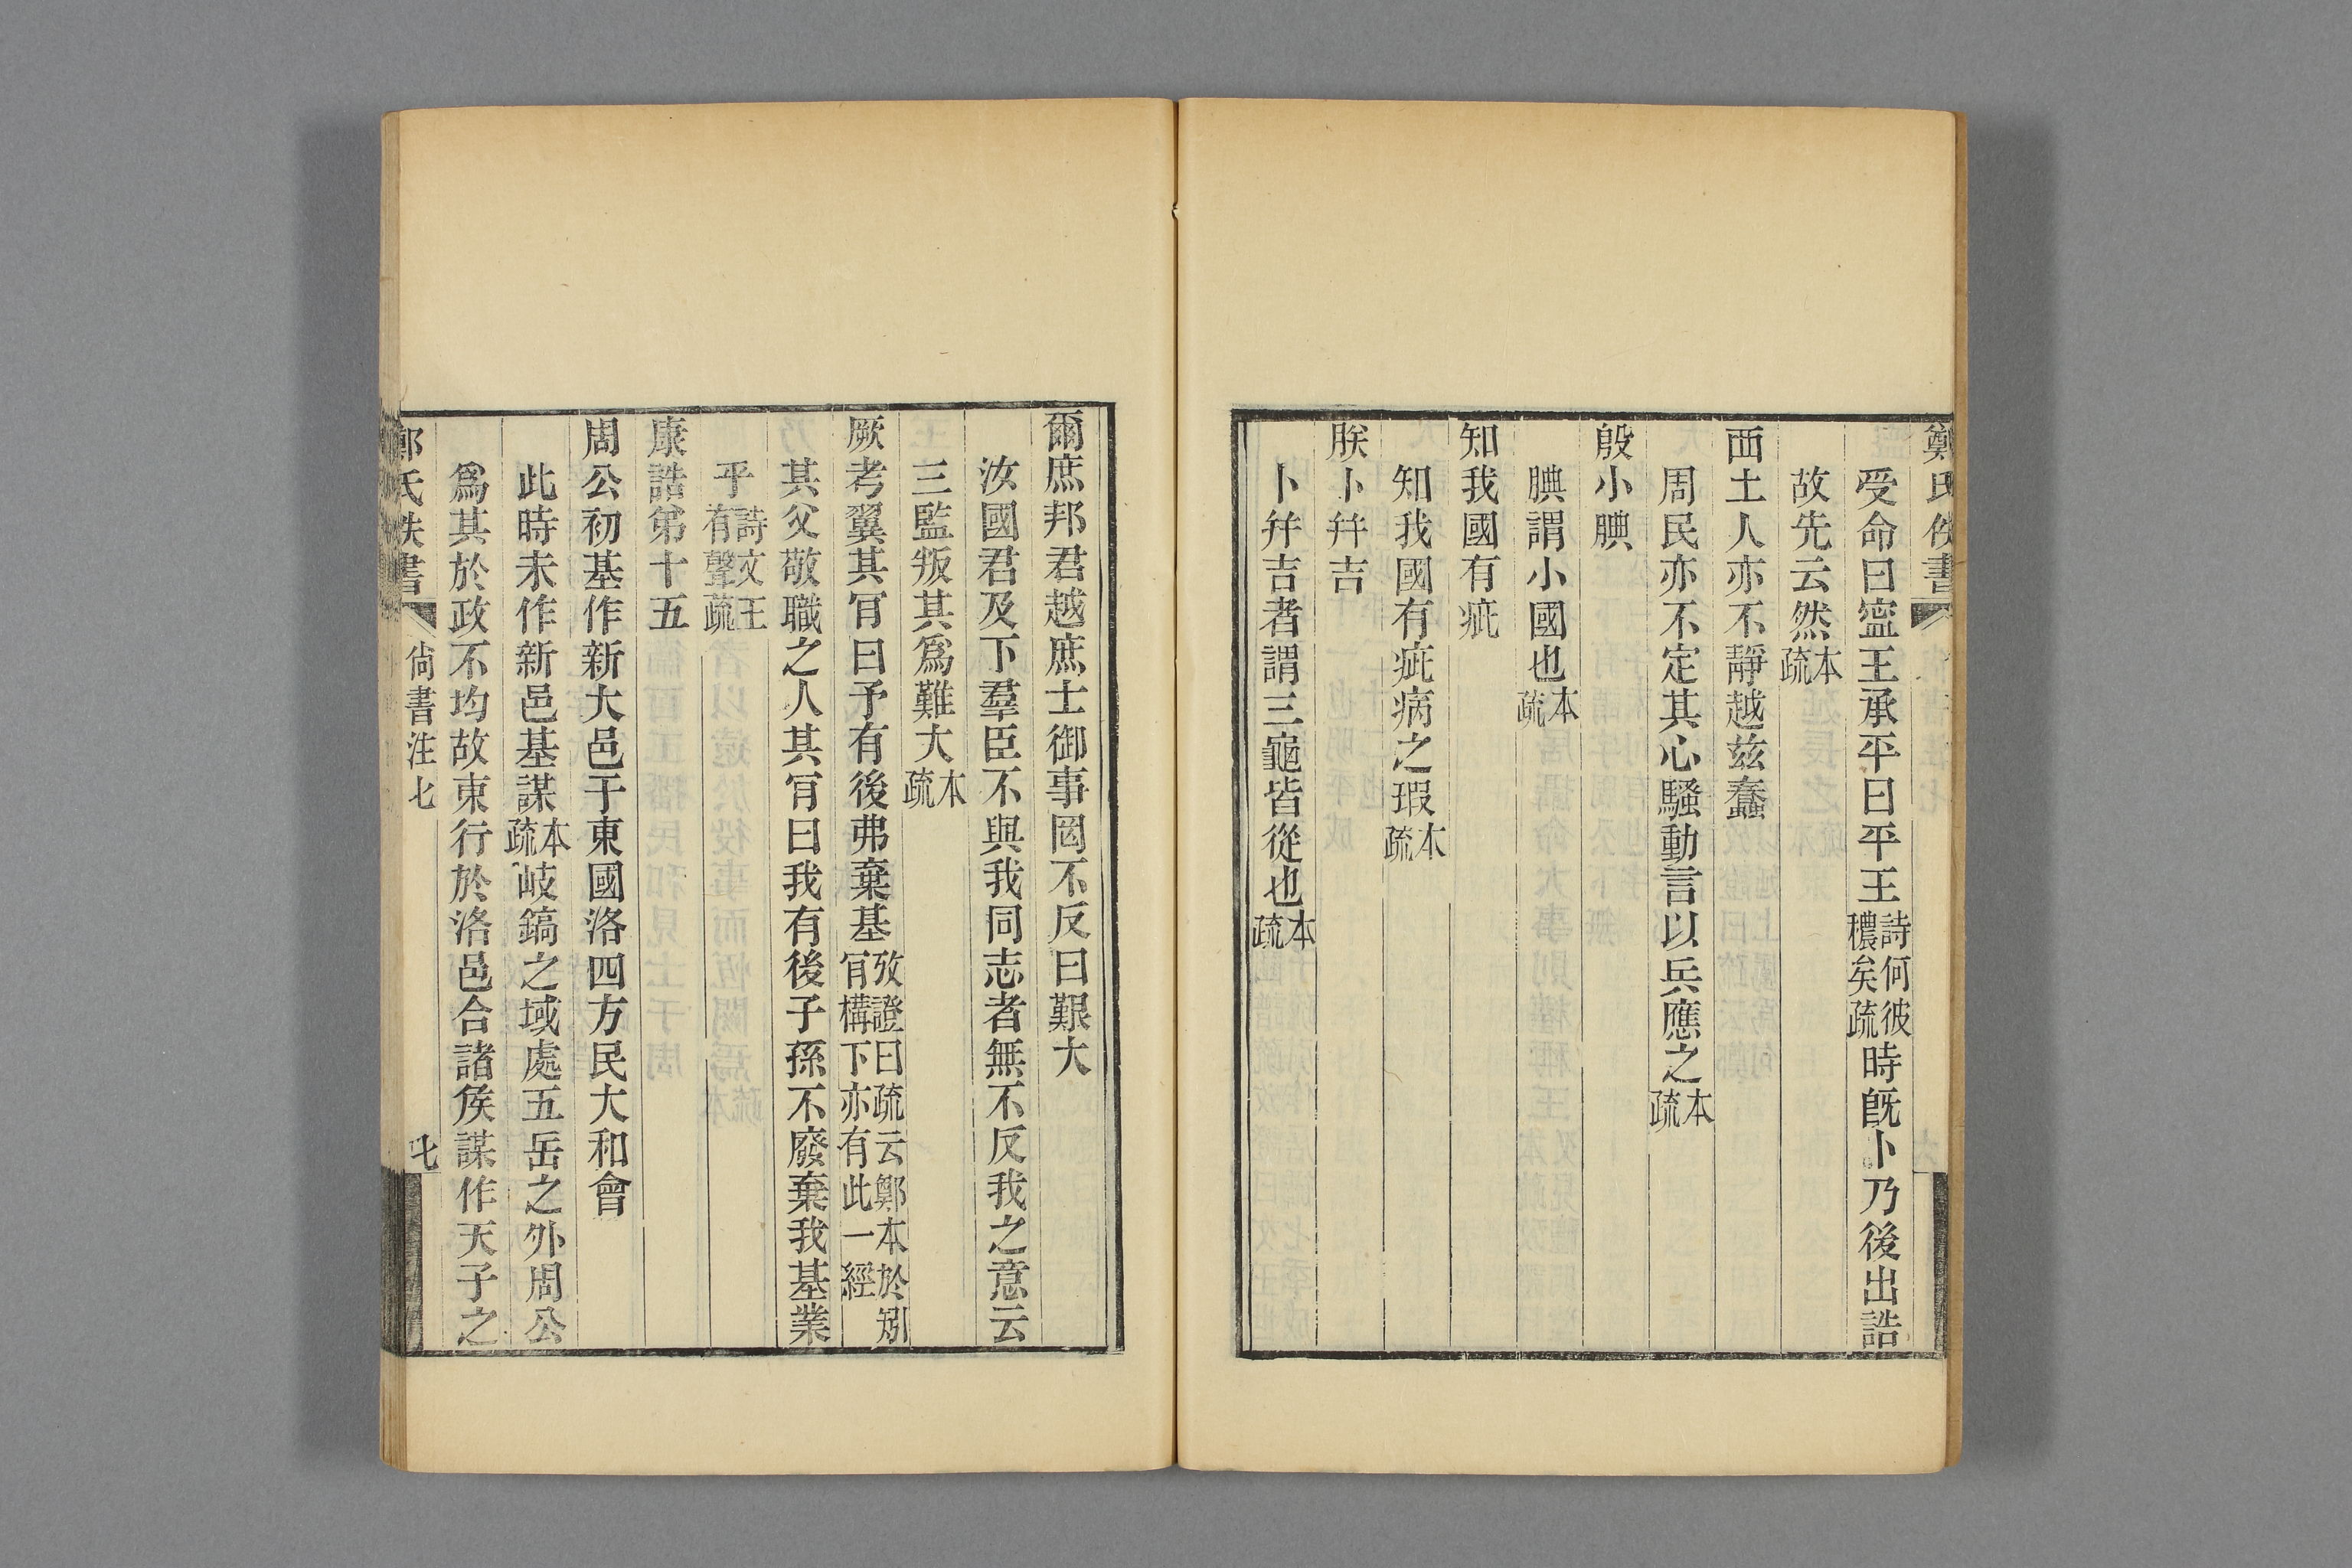 鄭氏佚書
受命曰寍王承平曰平王詩何彼穠矣疏時旣卜乃後出誥
故先云然本疏
西土人亦不靜越茲蠢
周民亦不定其心騷動言以兵應之本疏
殷小腆
腆謂小國也本疏
知我國有疵
知我國有疵病之瑕本疏
朕卜幷吉
卜幷吉者謂三龜皆從也本疏
爾庶邦君越庶士御事罔不反曰艱大
汝國君及下羣臣不與我同志者無不反我之意云
三監叛其爲難大本疏
厥考翼其肎曰予有後弗棄基攷證曰疏云鄭本於矧肎構下亦有此一經
其父敬職之人其肎曰我有後子孫不廢棄我基業
乎詩文王有聲疏
康誥第十五
周公初基作新大邑于東國洛四方民大和會
此時未作新邑基謀本疏岐鎬之域處五岳之外周公
爲其於政不均故東行於洛邑合諸侯謀作天子之
鄭氏佚書 尙書注七 七